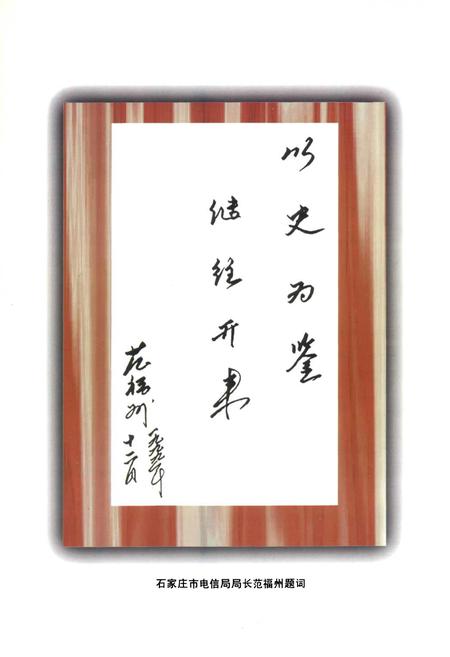 以史为鉴
继往开来
范福州
十二月
石家庄市电信局局长范福州题词